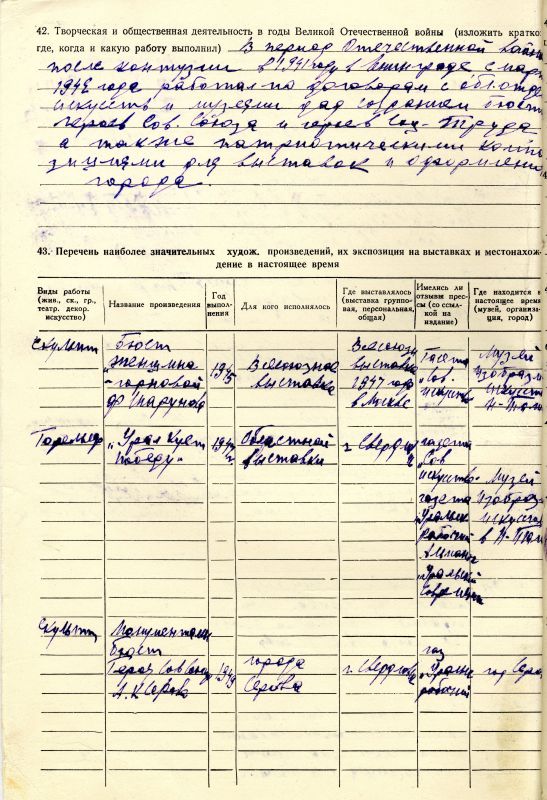 42. Творческая и общественная деятельность в годы Великой Отечественной войны (изложить кратко:
где, когда и какую работу выполнил) В период Отечественной войны
после контузии в 1941 году в с март
1942 года работал по договорам с
искусств и музеями над созданием бюстов
героев Сов. Союза и героев Соц-Труда
а также патриотическими компо
зициями для выставок и оформлени
города.
43. Перечень наиболее значительных худож. произведений, их экспозиция на выставках и местонахож-
дение в настоящее время
Виды работы
(жив., ск., гр.,
театр. декор.
искусство)
Название произведения
Год
выпол-
нения
Для кого исполнялось
Где выставлялось
(выставка группо-
вая, персональная,
общая)
Имелись ли
отзывы прес-
сы (со ссыл-
кой на
издание)
Где находится в
настоящее время
(музей, организа-
ция, город)
Скульпт
бюст
"Женщина
-горновой
Ф Шарунова
1945
Всесоюзная
выставка
Всесоюзн
выставка
1947 года
в Москве
Газета
"Сов.
искусств
Музей
изобраз
искусств
Н-Таги
Горельеф
"Урал кует
победу"
Областной
выставки
г. Свердл
газета
"Сов
искусство
газета
"Уральск
рабочий
"Уральский
современ
Музей
изобраз
искусств
в Н-Таги
Скульпт
Монументальн
бюст
Героя Сов Союза
А.К Серова
1949
города
Серова
г. Свердловс
газ
"Уральс
рабочий
гор Серов